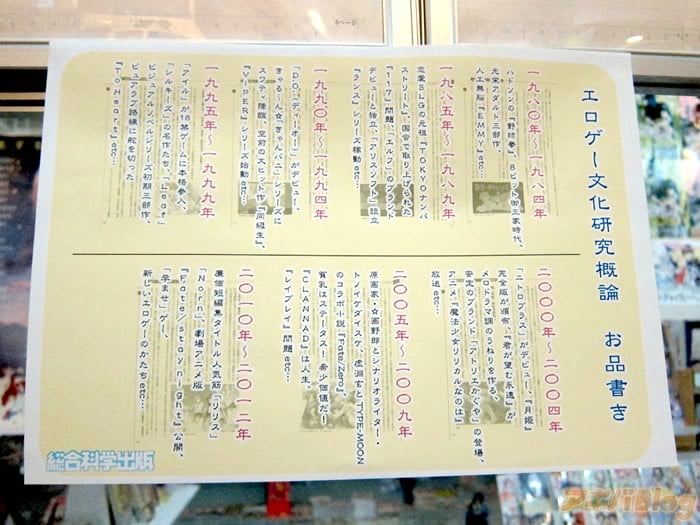 エロゲー文化研究概論　お品書き
一九八〇年～一九八四年
ハドソンの『野球拳』、８ビット御三家時代、
光栄アダルト三部作、
人工無脳『ＥＭＭＹ』etc…
一九八五年～一九八九年
恋愛ＳＬＧの元祖『ＴＯＫＹＯナンパ
ストリート』、国会で取り上げられた
『１７７』問題、「エルフ」のブランド
デビューと独立、「アリスソフト」設立
『ランス』シリーズ稼動etc…
一九九〇年～一九九四年
「Ｄ.Ｏ.(ディー・オー)」がデビュー、
『きゃんきゃんバニー』シリーズに
スワティ降臨、空前の大ヒット作『同級生』、
『ＶＩＰＥＲ』シリーズ始動etc…
一九九五年～一九九九年
「アイル」が18禁ゲームに本格参入、
「シルキーズ」の名作たち、「Leaf」
ビジュアルノベルシリーズ初期三部作、
ピュアラブ路線に舵を切った
『ToHeart』etc…
二〇〇〇年～二〇〇四年
「ニトロプラス」がデビュー、『月姫』
完全版が頒布、『君が望む永遠』が
メロドラマ調のうねりを作る、
安定のブランド「アトリエかぐや」の登場、
アニメ『魔法少女リリカルなのは』
放送etc…
二〇〇五年～二〇〇九年
原画家・☆画野朗とシナリオライター・
トノイケダイスケ、虚淵玄とTYPE-MOON
のコラボ小説『Fate/Zero』、
貧乳はステータス！希少価値だ！
『CLANNAD』は人生、
『レイプレイ』問題etc…
二〇一〇年～二〇一二年
廉価短編集タイトル人気筋「リリス」
「Norn」、劇場アニメ版
『Fate/stay night』公開、
「孕ませ」ゲー、
新しいエロゲーのかたちetc…
総合科学出版
アキバBlog